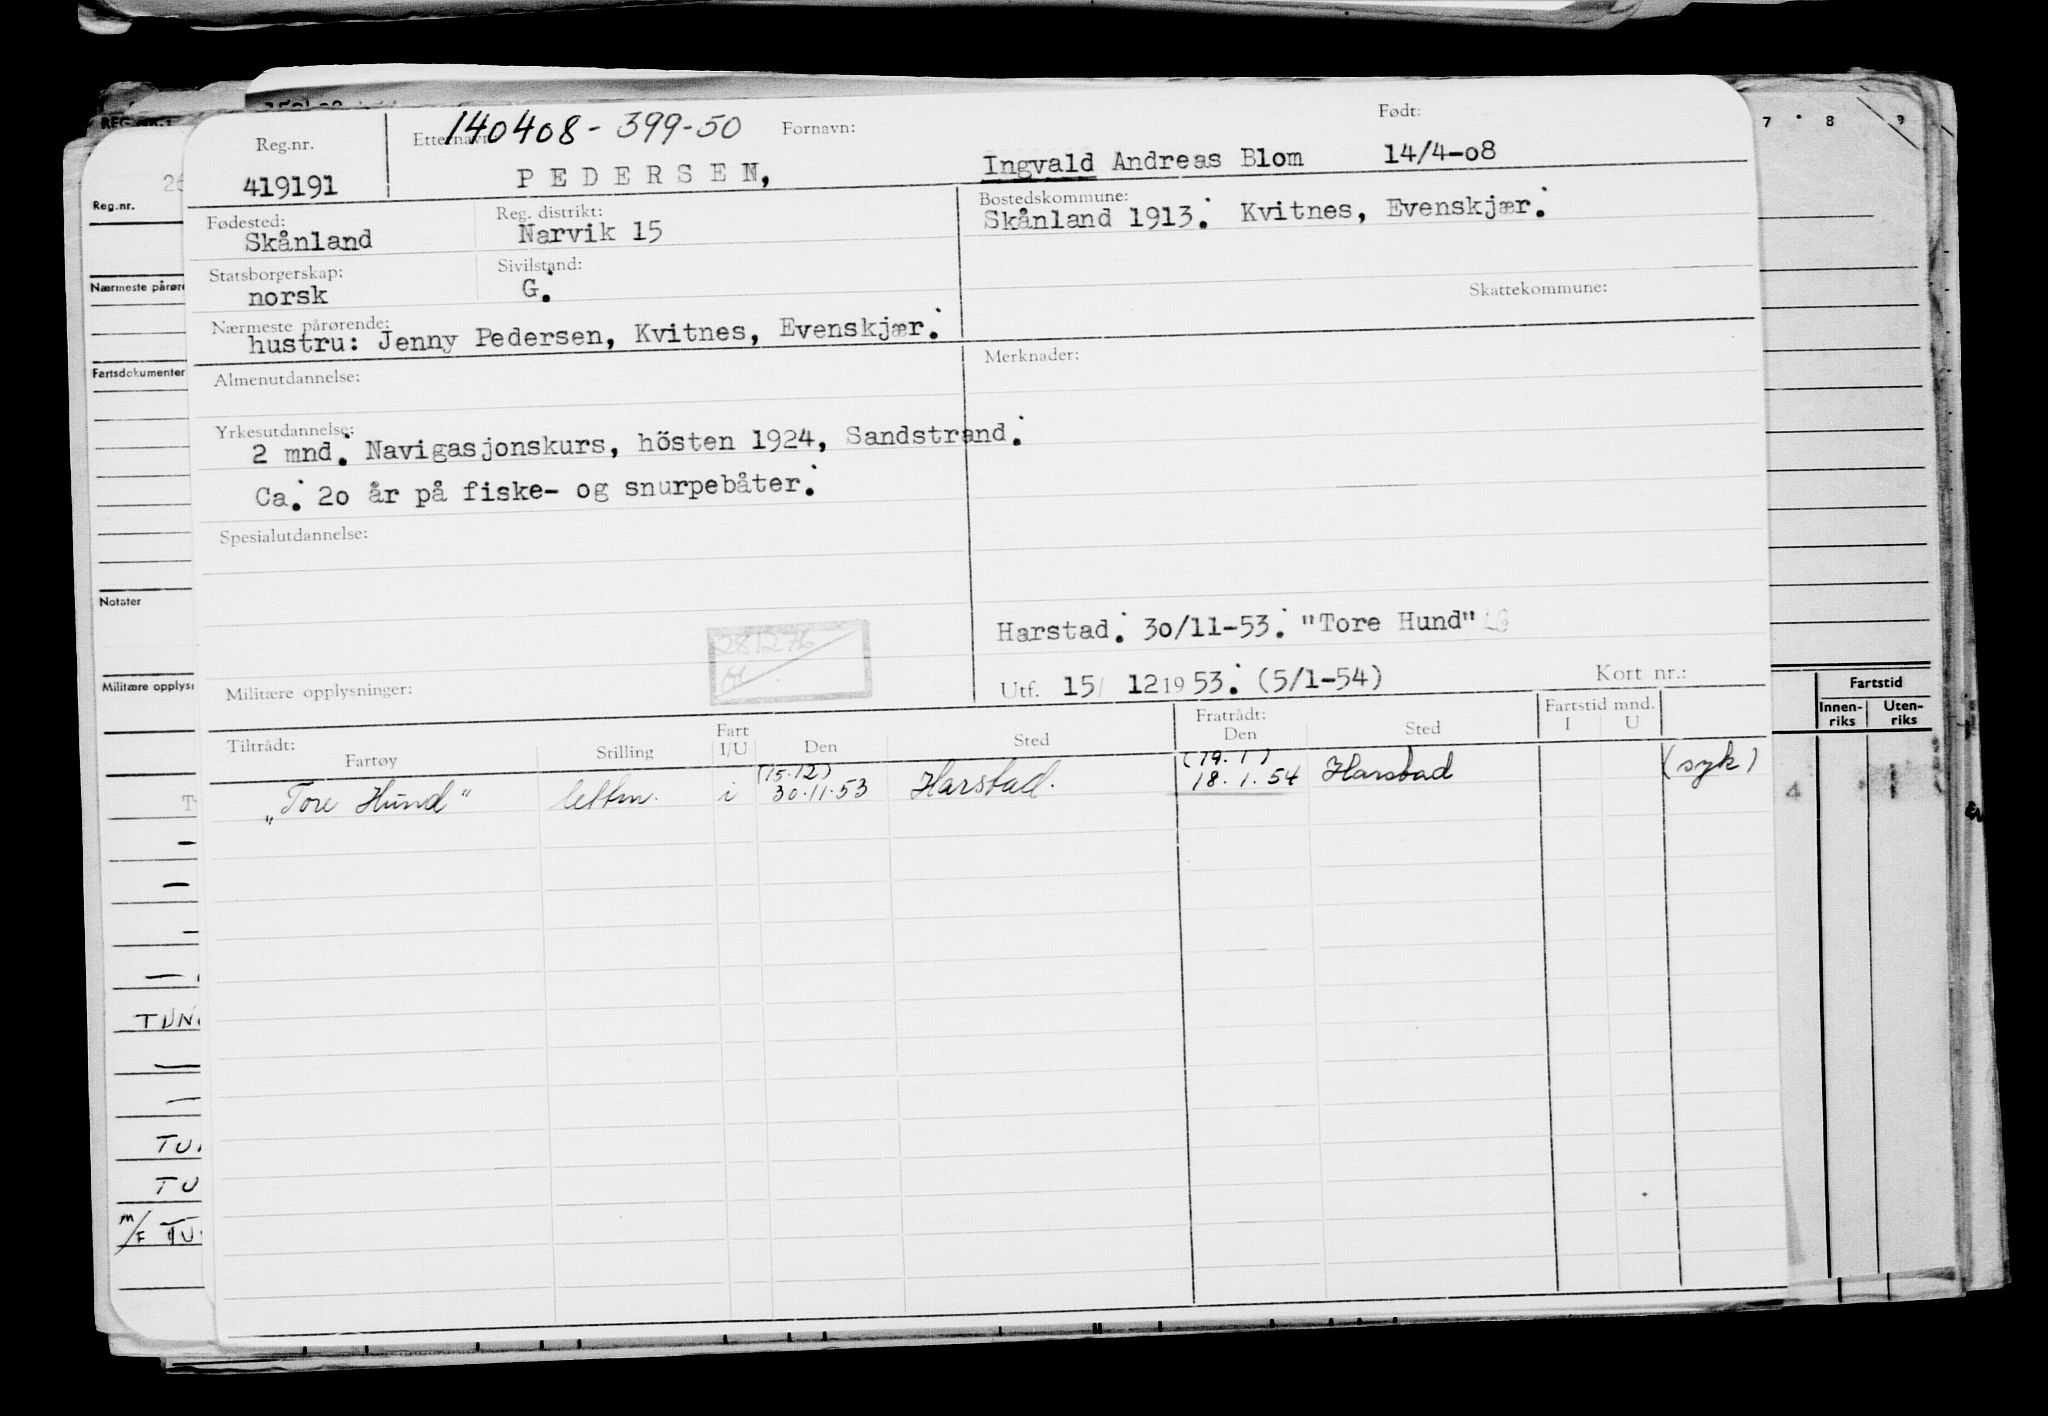 140408-399-50
Reg.nr. Etternavn: Fornavn: Født:
419191 PEDERSEN, Ingvald Andreas Blom 14/4-08
Fødested: Reg. distrikt: Bostedskommune:
Skånland Narvik 15 Skånland 1913. Kvitnes, Evenskjær.
Statsborgerskap: Sivilstand: Skattekommune:
norsk G.
Nærmeste pårørende:
hustru: Jenny Pedersen, Kvitnes, Evenskjær.
Almenutdannelse: Merknader:
Yrkesutdannelse:
2 mnd. Navigasjonskurs, hösten 1924, Sandstrand.
Ca. 20 år på fiske- og snurpebåter.
Spesialutdannelse:
Harstad. 30/11-53. "Tore Hund"
281276
Militære opplysninger: Utf. 15/ 12 1953. (5/1-54) Kort nr.:
Tiltrådt: Fratrådt: Fartstid mnd.
Fartøy Stilling Fart I/U Den Sted Den Sted I U
(15.12) (19.1)
"Tore Hund" lettm. i 30.11.53 Harstad. 18.1.54 Harstad (syk)
REG.NR.:
26
Reg.nr.
Nærmeste pårøre
Fartsdokumenter
Notater
Militære opplys
TUN
TU
TU
M/F TU
7 8 9
Fartstid
Innen-riks Uten-riks
4